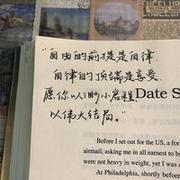 "自由的前提是自律
自律的顶端是享受
愿你以渺小启程 Date S
以伟大结局。"
Before I set out for the US, a fo
airmail, asking me in all earnest to b
were not heavy in weight, yet I was
At Philadelphia, shortly before